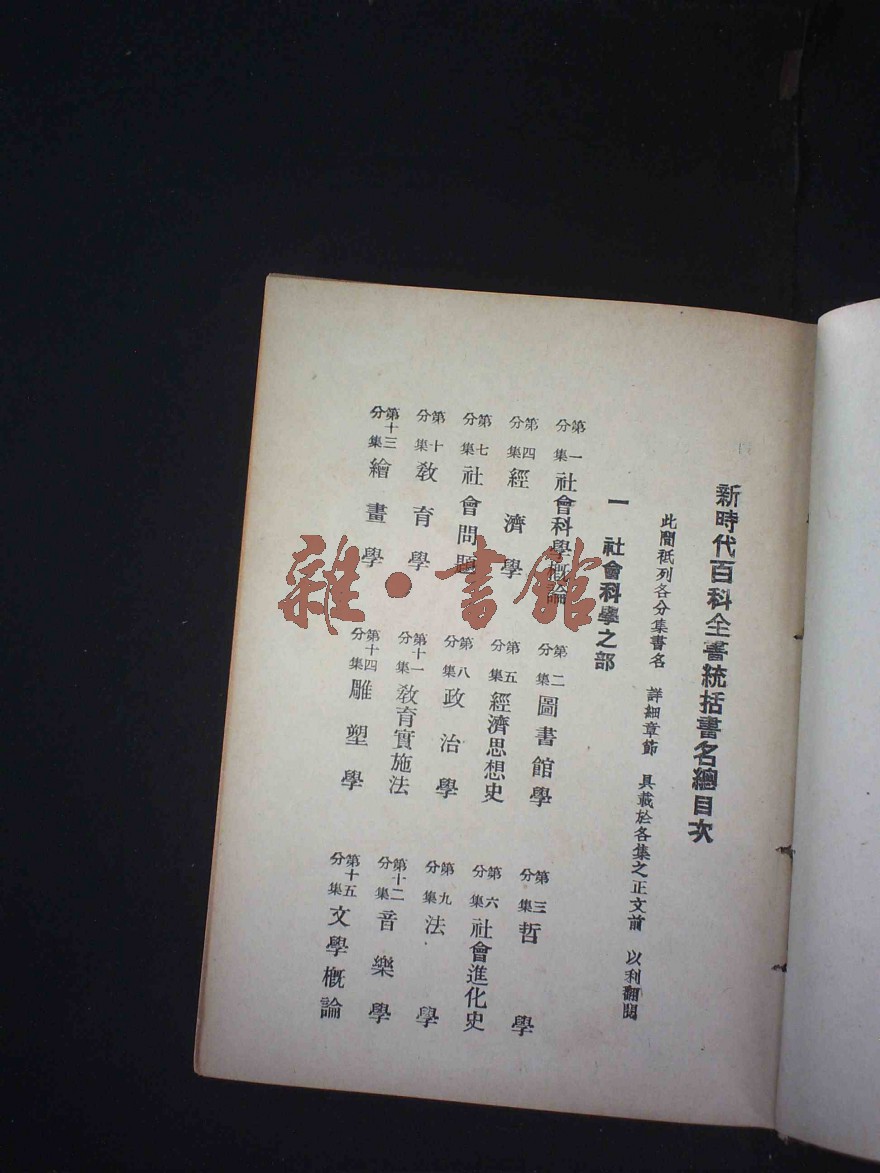 新時代百科全書統括書名總目次
此間秪列各分集書名 詳細章節 具載於各集之正文前 以利翻閱
一 社會科學之部
第一分集 社會科學概論 第二分集 圖書館學 第三分集 哲學
第四分集 經濟學 第五分集 經濟思想史 第六分集 社會進化史
第七分集 社會問題 第八分集 政治學 第九分集 法學
第十分集 教育學 第十一分集 教育實施法 第十二分集 音樂學
第十三分集 繪畫學 第十四分集 雕塑學 第十五分集 文學概論
雜·書館